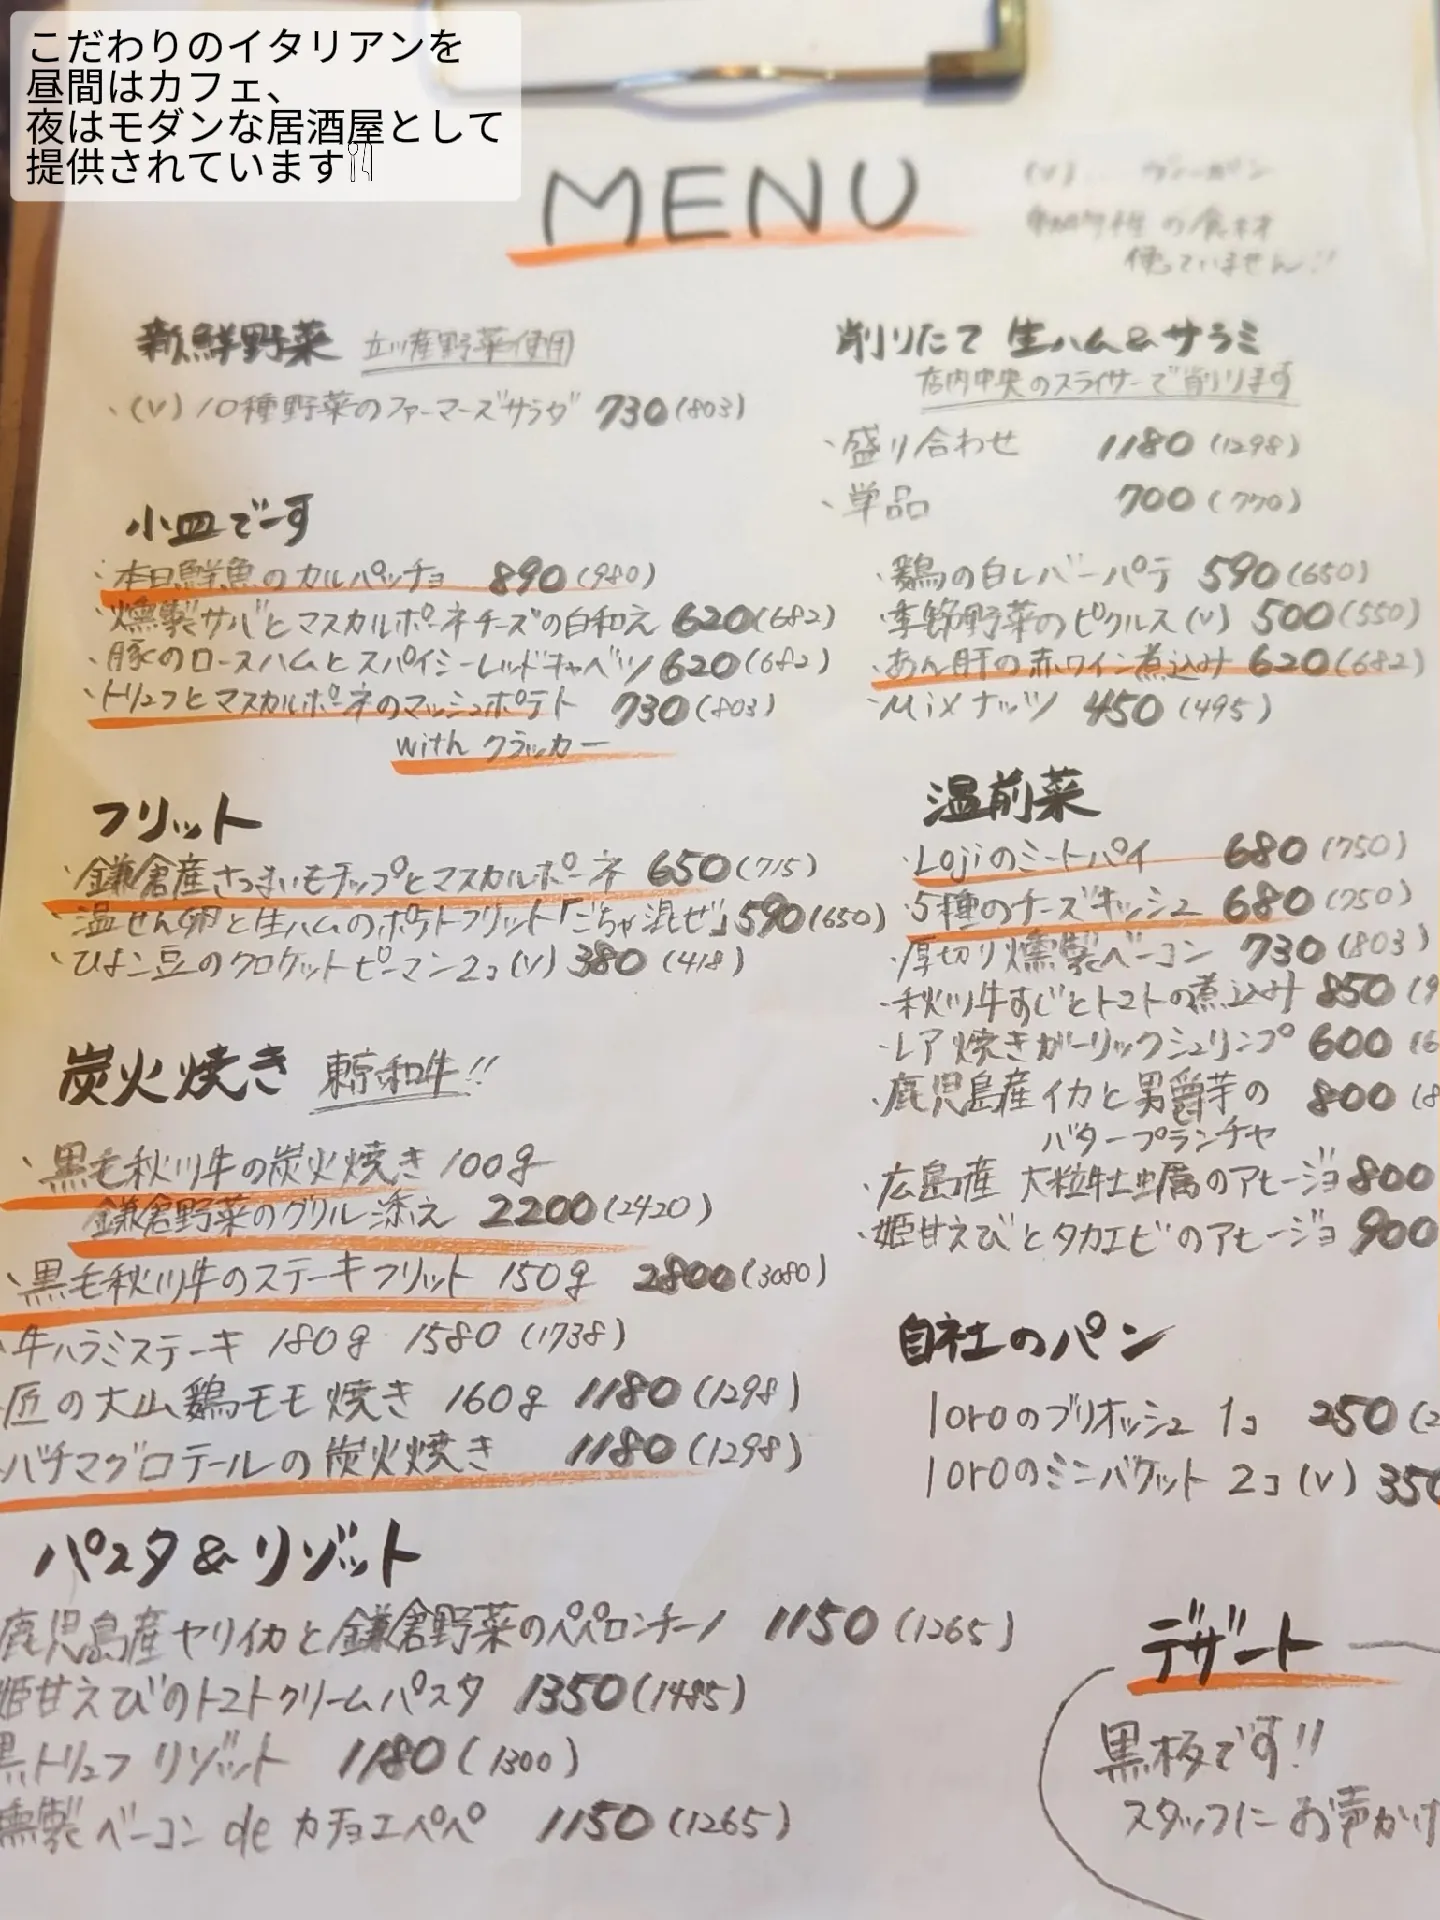 こだわりのイタリアンを
昼間はカフェ、
夜はモダンな居酒屋として
提供されています🍴
MENU
(V)... ヴィーガン
動物性の食材
使っていません!!
新鮮野菜 立川産野菜使用
・(V)10種野菜のファーマーズサラダ 730(803)
小皿でーす
・本日鮮魚のカルパッチョ 890(980)
・燻製サバとマスカルポーネチーズの白和え 620(682)
・豚のロースハムとスパイシーレッドキャベツ 620(682)
・トリュフとマスカルポーネのマッシュポテト 730(803)
with クラッカー
フリット
・鎌倉産さつまいもチップとマスカルポーネ 650(715)
・温せん卵と生ハムのポテトフリット「ごちゃ混ぜ」590(650)
・ひよこ豆のクロケットピーマン2コ(V) 380(418)
炭火焼き 東京和牛!!
・黒毛秋川牛の炭火焼き 100g
鎌倉野菜のグリル添え 2200(2420)
・黒毛秋川牛のステーキフリット 150g 2800(3080)
・牛ハラミステーキ 180g 1580(1738)
匠の大山鶏モモ焼き 160g 1180(1298)
・バチマグロテールの炭火焼き 1180(1298)
パスタ&リゾット
鹿児島産ヤリイカと鎌倉野菜のペペロンチーノ 1150(1265)
姫甘えびのトマトクリームパスタ 1350(1485)
黒トリュフリゾット 1180(1300)
燻製ベーコン de カチョエペペ 1150(1265)
削りたて 生ハム&サラミ
店内中央のスライサーで削ります
・盛り合わせ 1180(1298)
・単品 700(770)
・鶏の白レバーパテ 590(650)
・季節野菜のピクルス(V) 500(550)
・あん肝の赤ワイン煮込み 620(682)
・Mixナッツ 450(495)
温前菜
・Lojiのミートパイ 680(750)
・5種のチーズキッシュ 680(750)
・厚切り燻製ベーコン 730(803)
・秋川牛すじとトマトの煮込み 850(9
・レア焼きガーリックシュリンプ 600(6
・鹿児島産イカと男爵芋の 800(8
バタープランチャ
・広島産 大粒牡蠣のアヒージョ 800
・姫甘えびとタカエビのアヒージョ 900
自社のパン
loroのブリオッシュ 1コ 250(2
loroのミニバケット 2コ(V) 350
デザート
黒板です!!
スタッフにお声かけ